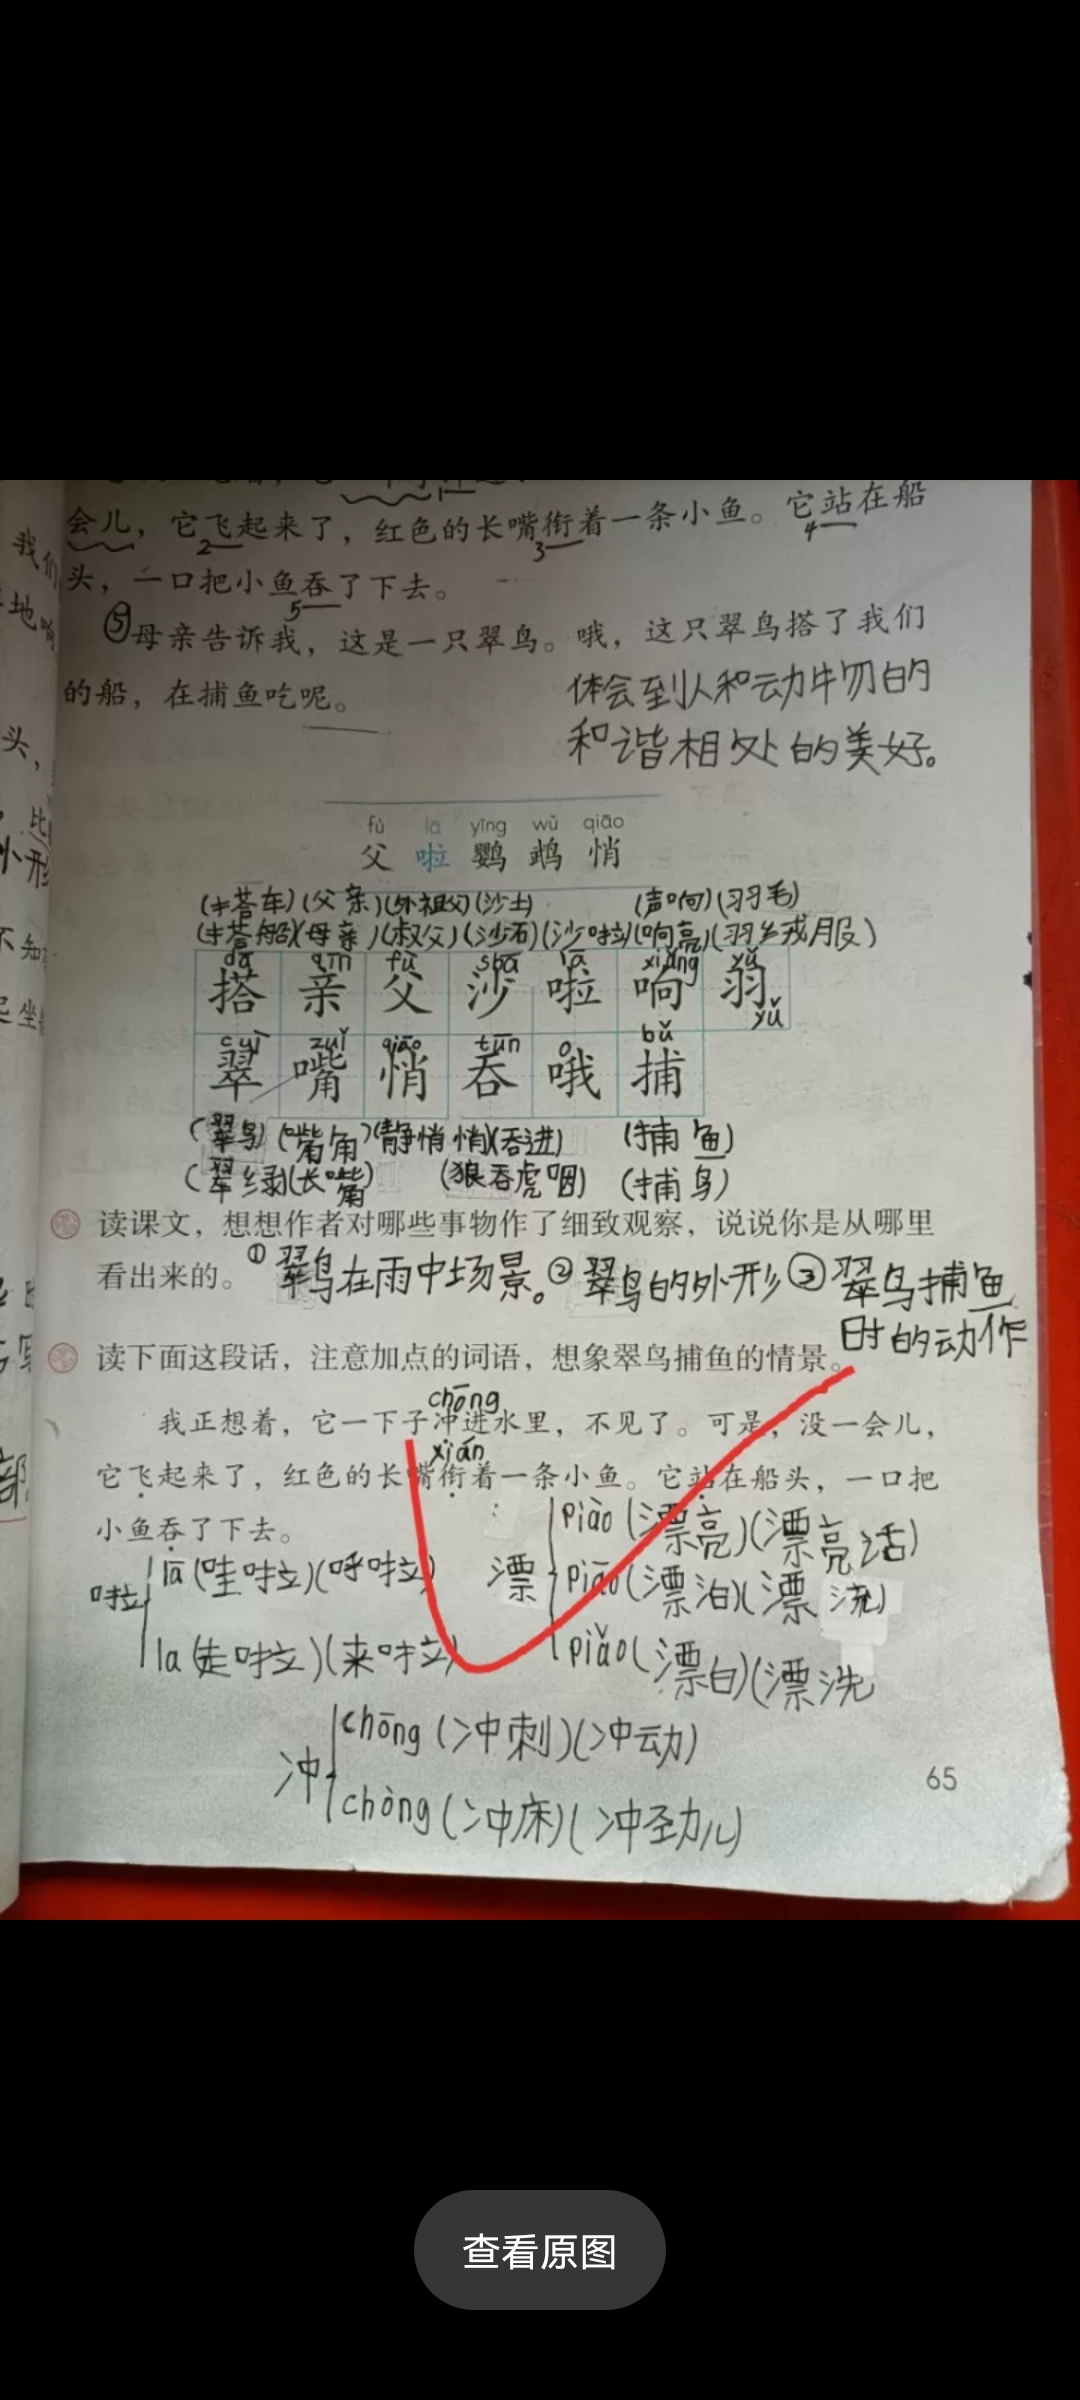 会儿，它飞起来了，红色的长嘴衔着一条小鱼。它站在船
2 3 4
头，一口把小鱼吞了下去。
5
⑤母亲告诉我，这是一只翠鸟。哦，这只翠鸟搭了我们
的船，在捕鱼吃呢。
体会到人和动物的
和谐相处的美好。
fù lā yīng wǔ qiāo
父 啦 鹦 鹉 悄
(搭车)(父亲)(外祖父)(沙土) (声响)(羽毛)
(搭船)(母亲)(叔父)(沙石)(沙啦)(响亮)(羽绒服)
dā qīn fù shā lā xiǎng yǔ
搭 亲 父 沙 啦 响 羽
yǔ
cuì zuǐ qiāo tūn ó bǔ
翠 嘴 悄 吞 哦 捕
(翠鸟)(嘴角)(静悄悄)(吞进) (捕鱼)
(翠绿)(长嘴) (狼吞虎咽) (捕鸟)
读课文，想想作者对哪些事物作了细致观察，说说你是从哪里
看出来的。①翠鸟在雨中场景。②翠鸟的外形③翠鸟捕鱼
时的动作
读下面这段话，注意加点的词语，想象翠鸟捕鱼的情景。
chōng
我正想着，它一下子冲进水里，不见了。可是，没一会儿，
xián
它飞起来了，红色的长嘴衔着一条小鱼。它站在船头，一口把
小鱼吞了下去。
啦
lā(哇啦)(呼啦)
la(走啦)(来啦)
漂
piào(漂亮)(漂亮话)
piāo(漂泊)(漂流)
piǎo(漂白)(漂洗
冲
chōng(冲刺)(冲动)
chòng(冲床)(冲劲儿)
65
查看原图